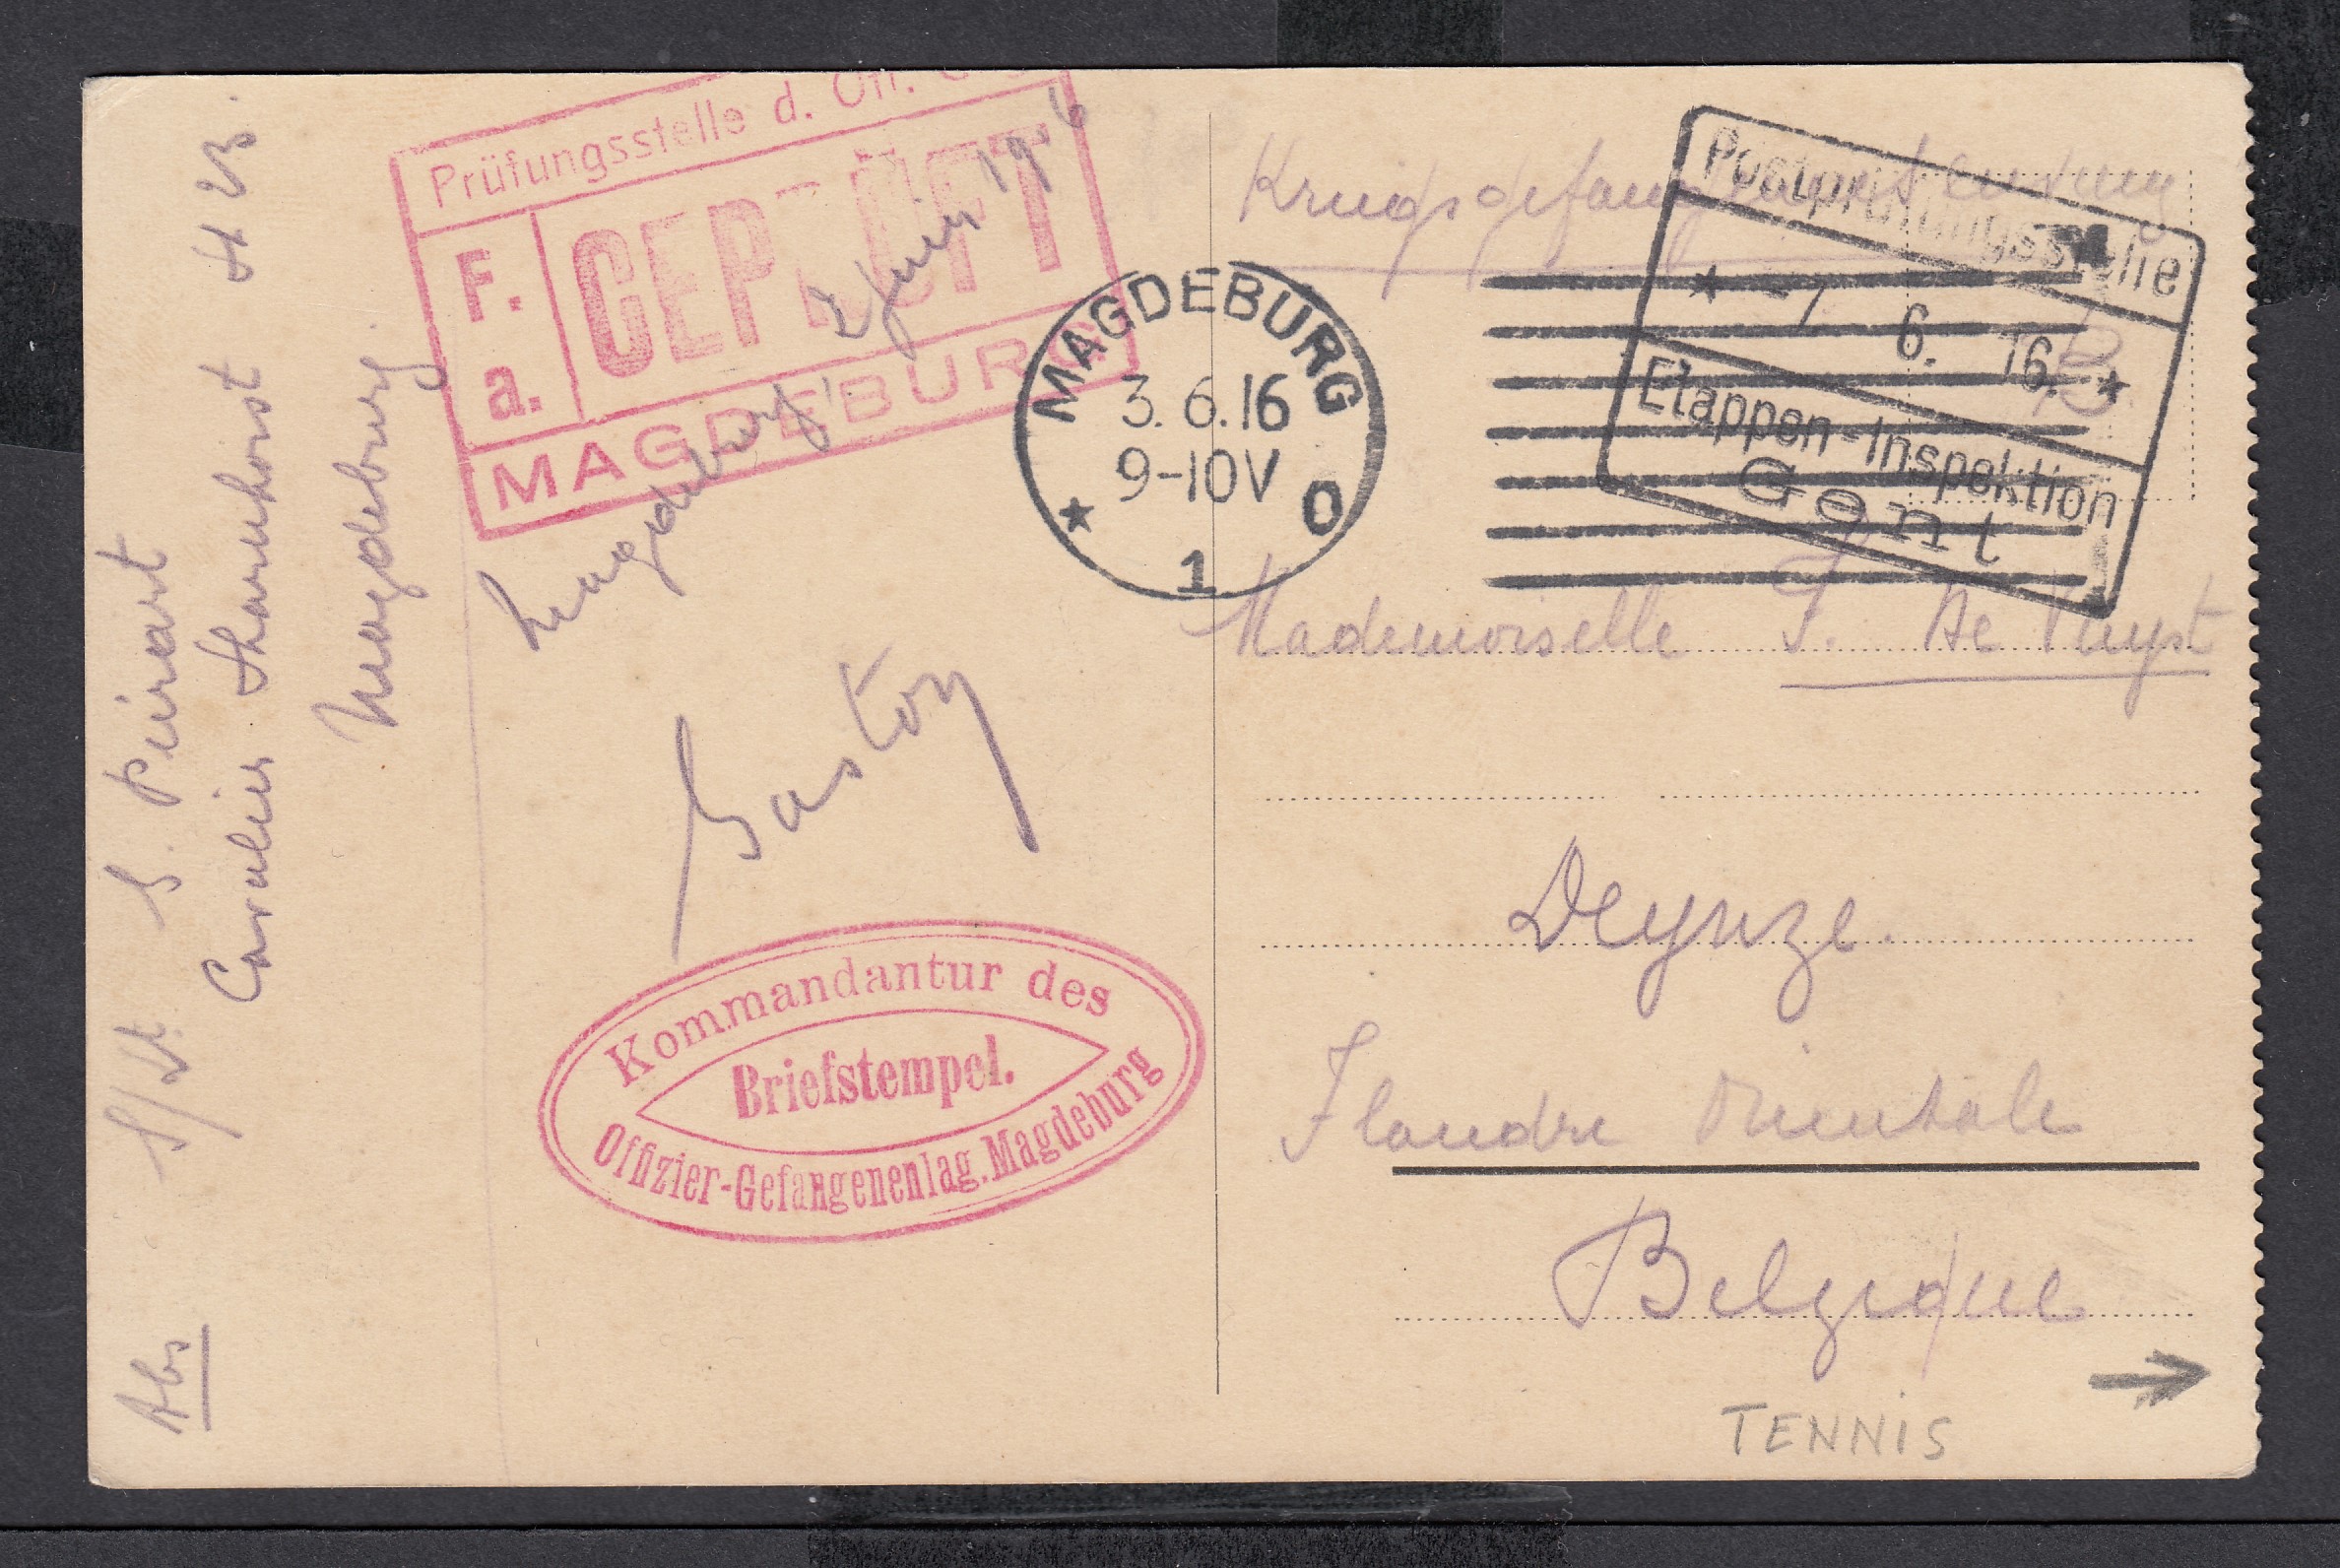 Prüfungsstelle d. Off.
F. a.
GEPRÜFT
MAGDEBURG
Magdeburg 2 juin 1916
Gaston
Kommandantur des
Briefstempel.
Offizier-Gefangenenlag. Magdeburg
Abs S/Lt. G. Peiraart
Cavalier Scharnhorst
Magdeburg.
MAGDEBURG
3. 6. 16
9-10V
★ 1 O
Postprüfungsstelle
★ -7. 6. 16. ★
Etappen-Inspektion
Gent
Kriegsgefangenensendung
Mademoiselle F. De Ruyst
Deynze.
Flandre Orientale
Belgique
TENNIS